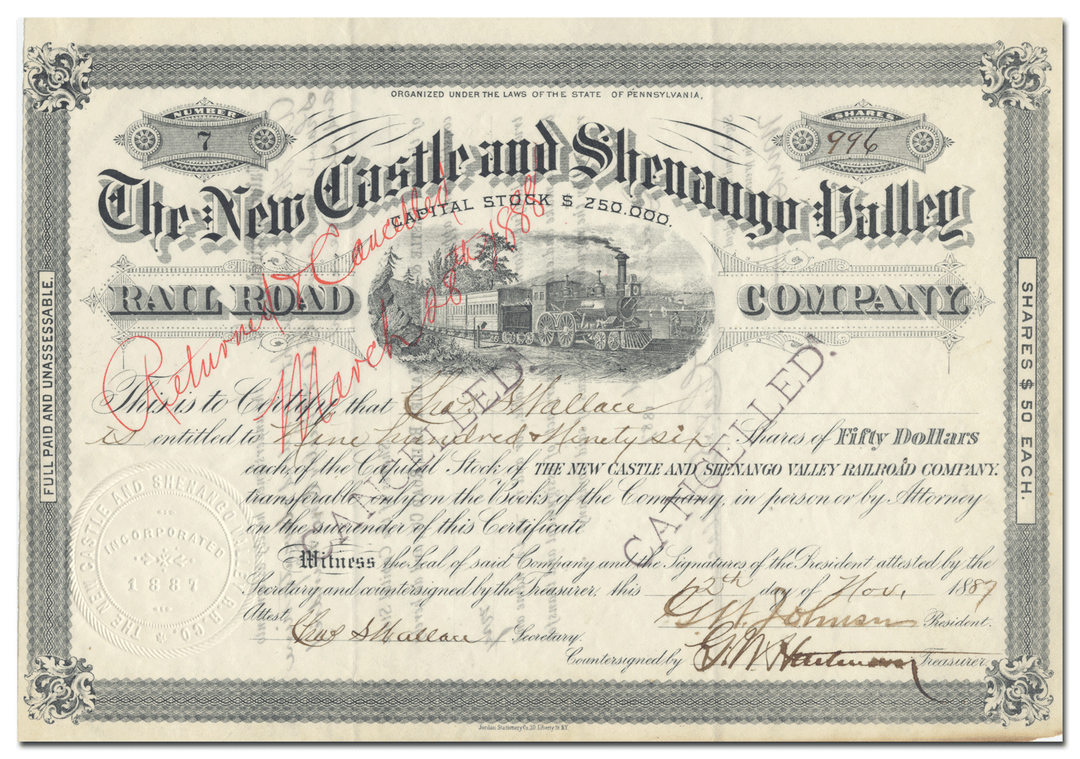 ORGANIZED UNDER THE LAWS OF THE STATE OF PENNSYLVANIA.
NUMBER
7
SHARES
996
The New Castle and Shenango Valley
CAPITAL STOCK $ 250.000.
RAIL ROAD COMPANY.
Returned & Cancelled
March 28th 1888
FULL PAID AND UNASSESSABLE.
SHARES $ 50 EACH.
This is to Certify that Chas S Wallace
is entitled to Nine hundred & Ninety six Shares of Fifty Dollars
each, of the Capital Stock of THE NEW CASTLE AND SHENANGO VALLEY RAILROAD COMPANY.
transferable only on the Books of the Company, in person or by Attorney
on the surrender of this Certificate
CANCELLED.
CANCELLED!
Witness the Seal of said Company and the Signatures of the President attested by the
Secretary and countersigned by the Treasurer, this 12th day of Nov. 1887
G W Johnson President.
Attest
Chas S Wallace Secretary.
Countersigned by Treasurer.
THE NEW CASTLE AND SHENANGO VALLEY R.R.CO.
INCORPORATED
1887
Jordan Stationery Co. Liberty St. N.Y.